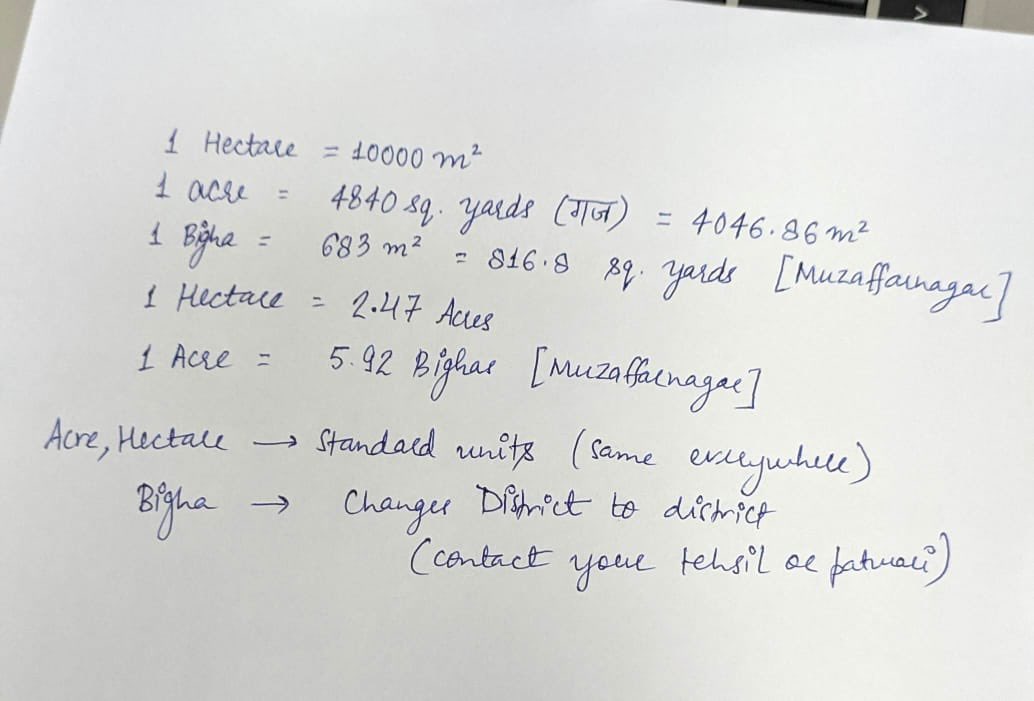 1 Hectare = 10000 m²
1 acre = 4840 sq. yards (गज) = 4046.86 m²
1 Bigha = 683 m² = 816.8 sq. yards [Muzaffarnagar]
1 Hectare = 2.47 Acres
1 Acre = 5.92 Bighas [Muzaffarnagar]
Acre, Hectare → Standard units (same everywhere)
Bigha → Changes District to district
(contact your tehsil or patwari)